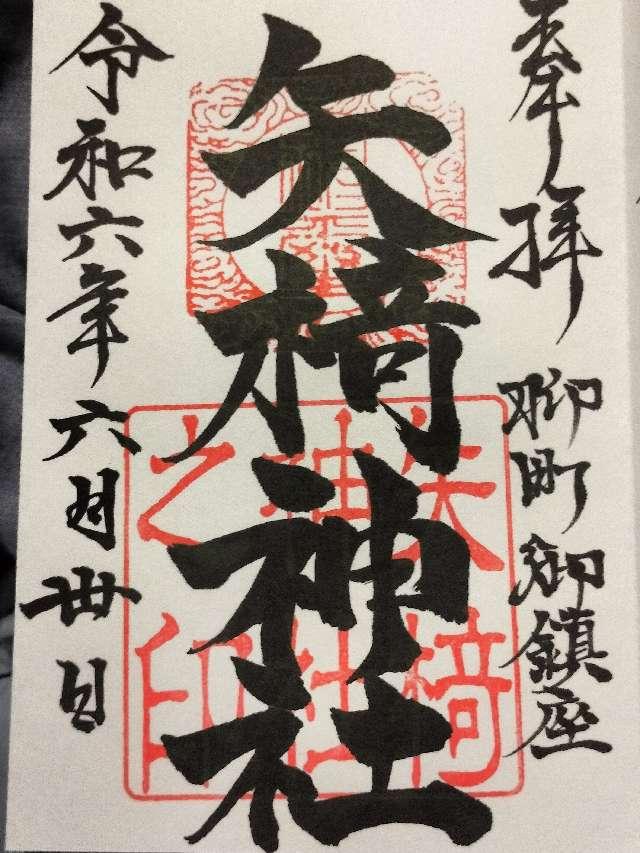 奉拝
柳町御鎮座
矢椅神社
矢椅
神社
之印
令和六年六月丗日